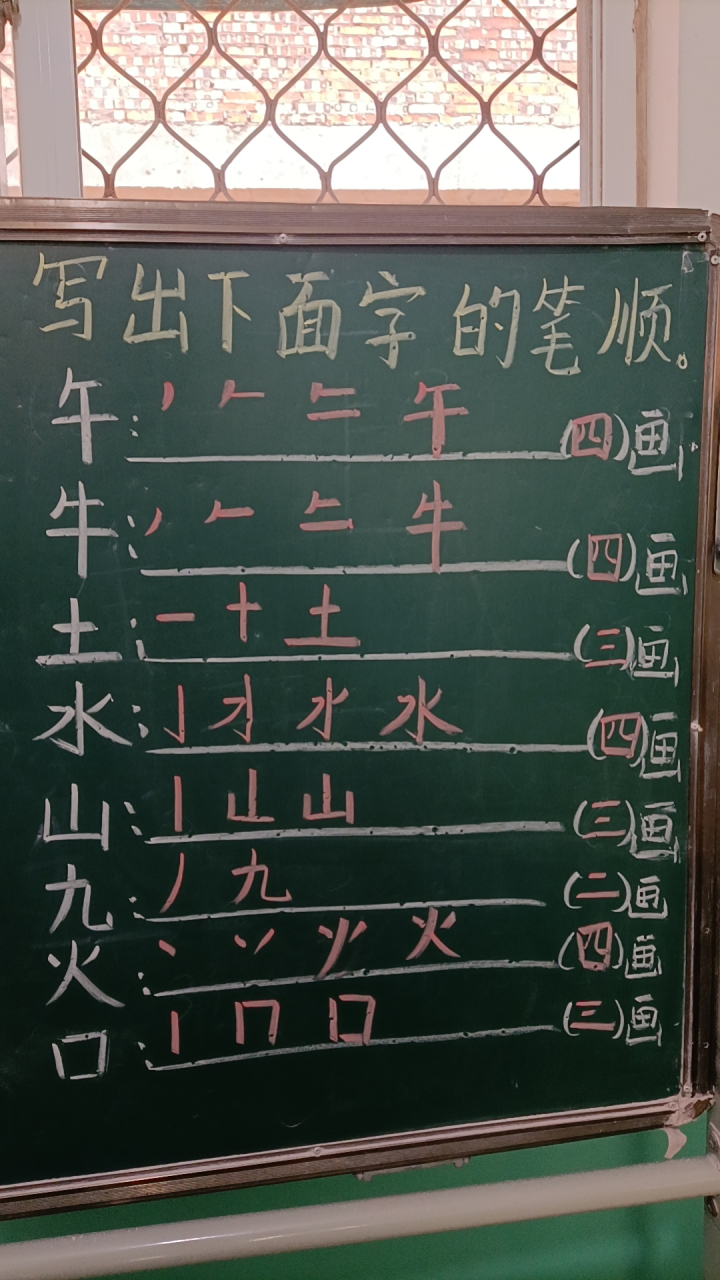 写出下面字的笔顺。
午：丿 𠂉 𠂉一 午 (四)画
牛：丿 𠂉 𠂉一 牛 (四)画
土：一 十 土 (三)画
水：亅 水 (四)画
山：丨 山 (三)画
九：丿 九 (二)画
火：丶 丷 火 (四)画
口：丨 冂 口 (三)画